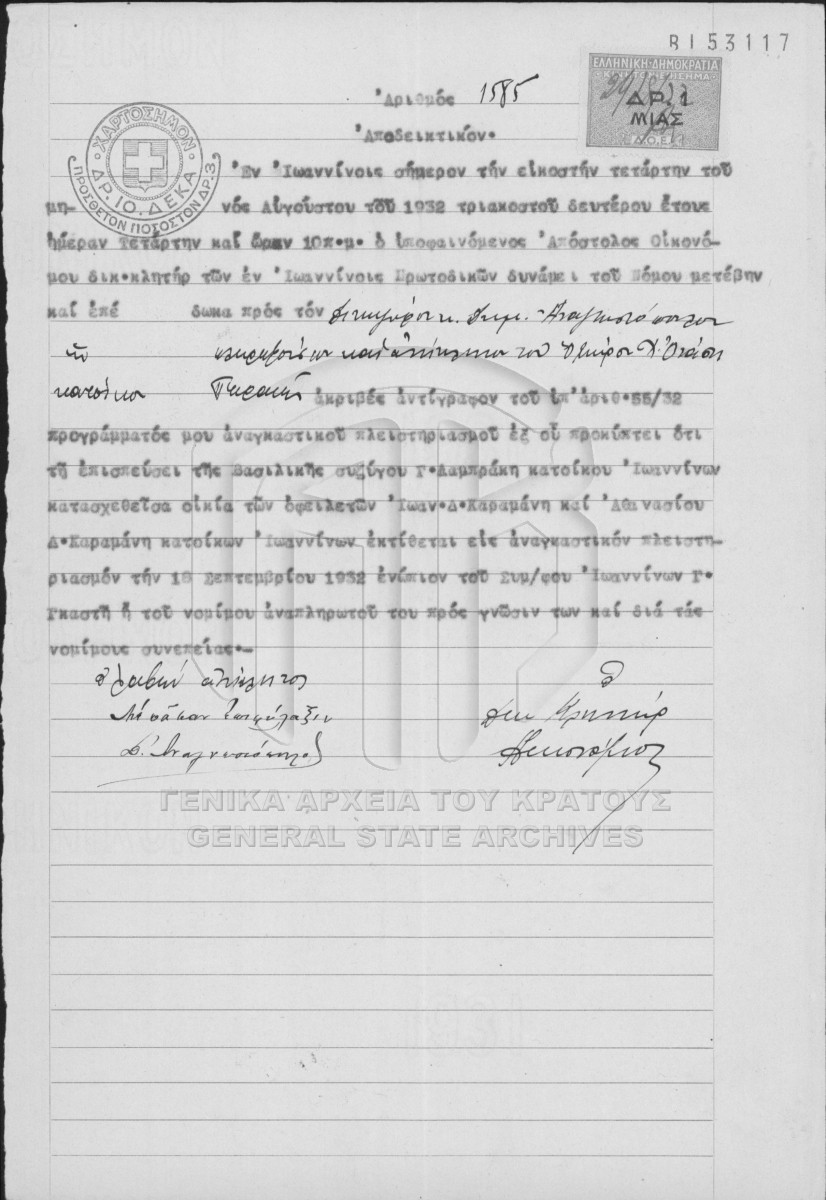 BI 53117
ΕΛΛΗΝΙΚΗ ΔΗΜΟΚΡΑΤΙΑ
ΔΡ. 1
ΜΙΑΣ
ΧΑΡΤΟΣΗΜΟΝ
ΔΡ. 10. ΔΕΚΑ
ΠΡΟΣΘΕΤΟΝ ΠΟΣΟΣΤΟΝ ΔΡ. 3.
Ἀριθμός 1585
Ἀποδεικτικόν.
Ἐν Ἰωαννίνοις σήμερον τήν εἰκοστήν τετάρτην τοῦ
μη-νός Αὐγούστου τοῦ 1932 τριακοστοῦ δευτέρου ἔτους
ἡμέραν Τετάρτην καί ὥραν 10π.μ. ὁ ὑποφαινόμενος Ἀπόστολος Οἰκονό-
μου δικ.κλητήρ τῶν ἐν Ἰωαννίνοις Πρωτοδικῶν δυνάμει τοῦ Νόμου μετέβην
καί ἐπέ δωκα πρός τόν Δικηγόρον κ. Δημ. Ἀναγνωστόπουλον
κατοίκου ἀκριβές ἀντίγραφον τοῦ ὑπ' ἀριθ.55/32
προγράμματός μου ἀναγκαστικοῦ πλειστηριασμοῦ ἐξ οὗ προκύπτει ὅτι
τῇ ἐπισπεύσει τῆς Βασιλικῆς συζύγου Γ.Λαμπράκη κατοίκου Ἰωαννίνων
κατασχεθεῖσα οἰκία τῶν ὀφειλετῶν Ἰωαν.Δ.Καραμάνη καί Ἀθανασίου
Δ.Καραμάνη κατοίκων Ἰωαννίνων ἐκτίθεται εἰς ἀναγκαστικόν πλειστη-
ριασμόν τήν 18 Σεπτεμβρίου 1932 ἐνώπιον τοῦ Συμ/φου Ἰωαννίνων Γ.
Γκαστῆ ἤ τοῦ νομίμου ἀναπληρωτοῦ του πρός γνῶσιν των καί διά τάς
νομίμους συνεπείας.-
Ὁ λαβών ἀντίκλητος Ὁ
Μέ πᾶσαν ἐπιφύλαξιν Δικ. Κλητήρ
Δ. Ἀναγνωστόπουλος
ΓΕΝΙΚΑ ΑΡΧΕΙΑ ΤΟΥ ΚΡΑΤΟΥΣ
GENERAL STATE ARCHIVES